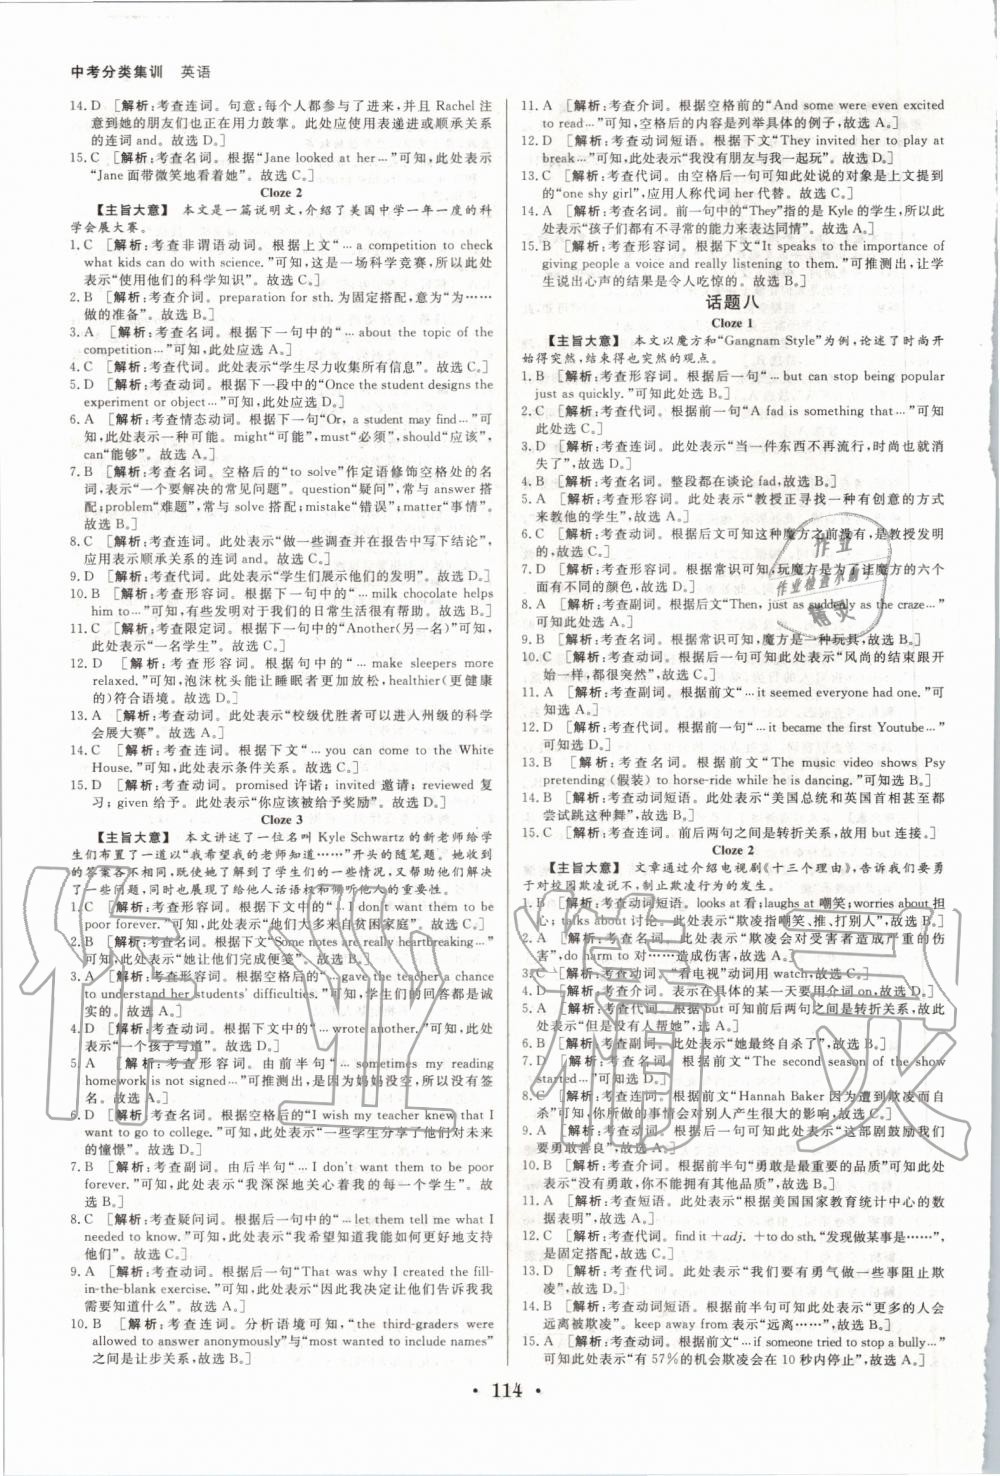 中考分类集训 英语
14. D [解析:考查连词。句意:每个人都参与了进来,并且 Rachel 注
意到她的朋友们也正在用力鼓掌。此处应使用表递进或顺承关系
的连词 and。故选 D。]
15. C [解析:考查名词。根据“Jane looked at her…”可知,此处表示
“Jane 面带微笑地看着她”。故选 C。]
Cloze 2
【主旨大意】 本文是一篇说明文,介绍了美国中学一年一度的科
学会展大赛。
1. C [解析:考查非谓语动词。根据上文“… a competition to check
what kids can do with science.”可知,这是一场科学竞赛,所以此处
表示“使用他们的科学知识”。故选 C。]
2. B [解析:考查介词。preparation for sth. 为固定搭配,意为“为……
做的准备”。故选 B。]
3. A [解析:考查名词。根据下一句中的“… about the topic of the
competition…”可知,此处应选 A。]
4. C [解析:考查代词。此处表示“学生尽力收集所有信息”。故选 C。]
5. D [解析:考查动词。根据下一段中的“Once the student designs the
experiment or object…”可知,此处应选 D。]
6. A [解析:考查情态动词。根据下一句“Or, a student may find…”可
知,此处表示一种可能。might“可能”,must“必须”,should“应该”,
can“能够”。故选 A。]
7. B [解析:考查名词。空格后的“to solve”作定语修饰空格处的名
词,表示“一个要解决的常见问题”。question“疑问”,常与 answer 搭
配;problem“难题”,常与 solve 搭配;mistake“错误”;matter“事情”。
故选 B。]
8. C [解析:考查连词。此处表示“做一些调查并在报告中写下结论”,
应用表示顺承关系的连词 and。故选 C。]
9. D [解析:考查代词。此处表示“学生们展示他们的发明”。故选 D。]
10. B [解析:考查形容词。根据后文中的“… milk chocolate helps
him to…”可知,有些发明对于我们的日常生活很有帮助。故选 B。]
11. C [解析:考查限定词。根据下一句中的“Another(另一名)”可知,
此处表示“一名学生”。故选 C。]
12. D [解析:考查形容词。根据句中的“… make sleepers more
relaxed.”可知,泡沫枕头能让睡眠者更加放松,healthier(更健康
的)符合语境。故选 D。]
13. A [解析:考查动词。此处表示“校级优胜者可以进入州级的科学
会展大赛”。故选 A。]
14. C [解析:考查连词。根据下文“… you can come to the White
House.”可知,此处表示条件关系。故选 C。]
15. D [解析:考查动词。promised 许诺;invited 邀请;reviewed 复
习;given 给予。此处表示“你应该被给予奖励”。故选 D。]
Cloze 3
【主旨大意】 本文讲述了一位名叫 Kyle Schwartz 的新老师给学
生们布置了一道以“我希望我的老师知道……”开头的随笔题。她收到
的答案各不相同,既使她了解到了学生们生活的艰难,也帮助他们解决
了一些问题,同时也展现了给他人话语权和倾听他人的重要性。
1. C [解析:考查形容词。根据下文中的“… I don't want them to be
poor forever.”可知,此处表示“他们大多来自贫困家庭”。故选 C。]
2. B [解析:考查动词。根据下文中的“Some notes are really heartbreaking…”
可知,此处表示“她让他们完成便笺”。故选 B。]
3. A [解析:考查形容词。根据空格后的“…gave the teacher a chance
to understand her students' difficulties.”可知,学生们的回答都是诚
实的。故选 A。]
4. D [解析:考查动词。根据下文中的“…wrote another.”可知,此处
表示“一个孩子写道”。故选 D。]
5. A [解析:考查形容词。由前半句“… sometimes my reading
homework is not signed…”可推测出,是因为妈妈没空,所以没有签
名。故选 A。]
6. D [解析:考查名词。根据空格后的“I wish my teacher knew that I
want to go to college.”可知,此处表示“一些学生分享了他们对未来
的憧憬”。故选 D。]
7. B [解析:考查副词。由后半句“… I don't want them to be poor
forever.”可知,此处表示“我深深地关心着我的每一个学生”。故
选 B。]
8. C [解析:考查疑问词。根据后一句中的“… let them tell me what I
needed to know.”可知,此处表示“我希望知道我如何更好地支持
他们”。故选 C。]
9. A [解析:考查副词。根据后一句“That was why I created the fill-
in-the-blank exercise.”可知,此处表示“因此我决定让他们告诉我我
需要知道什么”。故选 A。]
10. B [解析:考查连词。分析语境可知,“the third-graders were
allowed to answer anonymously”与“most wanted to include names”
之间是让步关系,故选 B。]
11. A [解析:考查介词。根据空格前的“And some were even excited
to read…”可知,空格后的内容是列举具体的例子,故选 A。]
12. D [解析:考查动词短语。根据下文“They invited her to play at
break…”可知,此处表示“我没有朋友与我一起玩”。故选 D。]
13. C [解析:考查代词。由空格后一句可知此处说的对象是上文提到
的“one shy girl”,应用人称代词 her 代替。故选 C。]
14. A [解析:考查名词。前一句中的“They”指的是 Kyle 的学生,所以
此处表示“孩子们都有不寻常的能力来表达同情”。故选 A。]
15. B [解析:考查形容词。根据下文“It speaks to the importance of
giving people a voice and really listening to them.”可推测出,让学
生说出心声的结果是令人吃惊的。故选 B。]
话题八
Cloze 1
【主旨大意】 本文以魔方和“Gangnam Style”为例,论述了时尚开
始得突然,结束得也突然的观点。
1. B [解析:考查形容词。根据后一句“… but can stop being popular
just as quickly.”可知此处选 B。]
2. C [解析:考查代词。根据前一句“A fad is something that…”可知
此处选 C。]
3. D [解析:考查连词。此处表示“当一件东西不再流行,时尚也就消
失了”,故选 D。]
4. B [解析:考查名词。整段都在谈论 fad,故选 B。]
5. A [解析:考查形容词。此处表示“教授正寻找一种有创意的方式
来教他的学生”,故选 A。]
6. C [解析:考查动词。根据后文可知这种魔方之前没有,是教授发明
的,故选 C。]
7. D [解析:考查介词。根据常识可知,玩魔方是为了让魔方的六个
面有不同的颜色,故选 D。]
8. A [解析:考查副词。根据后文“Then, just as suddenly as the craze…”
可知此处选 A。]
9. B [解析:考查名词。根据常识可知,魔方是一种玩具,故选 B。]
10. C [解析:考查形容词。根据语境可知此处表示“风尚的结束跟开
始一样,都很突然”,故选 C。]
11. A [解析:考查副词。根据前文“…it seemed everyone had one.”可
知选 A。]
12. D [解析:考查代词。根据前一句“…it became the first Youtube…”
可知选 D。]
13. B [解析:考查动词。根据后文“The music video shows Psy
pretending (假装) to horse-ride while he is dancing.”可知选 B。]
14. B [解析:考查动词短语。此处表示“美国总统和英国首相甚至都
尝试跳这种舞”,故选 B。]
15. C [解析:考查连词。前后两句之间是转折关系,故用 but 连接。]
Cloze 2
【主旨大意】 文章通过介绍电视剧《十三个理由》,告诉我们要勇
于对校园欺凌说不,制止欺凌行为的发生。
1. B [解析:考查动词短语。looks at 看;laughs at 嘲笑;worries about 担
心;talks about 讨论。此处表示“欺凌指嘲笑、推、打别人”,故选 B。]
2. A [解析:考查名词。此处表示“欺凌会对受害者造成严重的伤
害”,do harm to 对……造成伤害,故选 A。]
3. C [解析:考查动词。“看电视”动词用 watch,故选 C。]
4. D [解析:考查介词。表示在具体的某一天要用介词 on,故选 D。]
5. A [解析:考查代词。根据 but 可知前后两句之间是转折关系,故此
处表示“但是没有人帮她”,选 A。]
6. B [解析:考查副词。此处表示“她最终自杀了”,故选 B。]
7. D [解析:考查名词。根据前文“The second season of the show
started…”可知选 D。]
8. C [解析:考查连词。根据前文“Hannah Baker 因为遭到欺凌而自
杀”可知,你所做的事情会对别人产生很大的影响,故选 C。]
9. A [解析:考查动词。根据后一句可知,此处表示“这部剧鼓励我们
要勇敢善良”,故选 A。]
10. B [解析:考查介词。根据前半句“勇敢是最重要的品质”可知此处表
示“没有勇气,你不能拥有其他品质”,故选 B。]
11. A [解析:考查短语。此处表示“根据美国国家教育统计中心的数
据表明”,故选 A。]
12. C [解析:考查代词。find it + adj. + to do sth.“发现做某事是……”,
是固定搭配,故选 C。]
13. D [解析:考查代词。此处表示“我们要有勇气做一些事阻止欺
凌”,故选 D。]
14. B [解析:考查动词短语。根据前半句可知此处表示“更多的人会
远离被欺凌”。keep away from 表示“远离……”,故选 B。]
15. A [解析:考查动词。根据前文“…if someone tried to stop a bully…”
可知此处表示“有 57%的机会欺凌会在 10 秒内停止”,故选 A。]
· 114 ·
作业
作业检查小助手
精灵
作业精灵